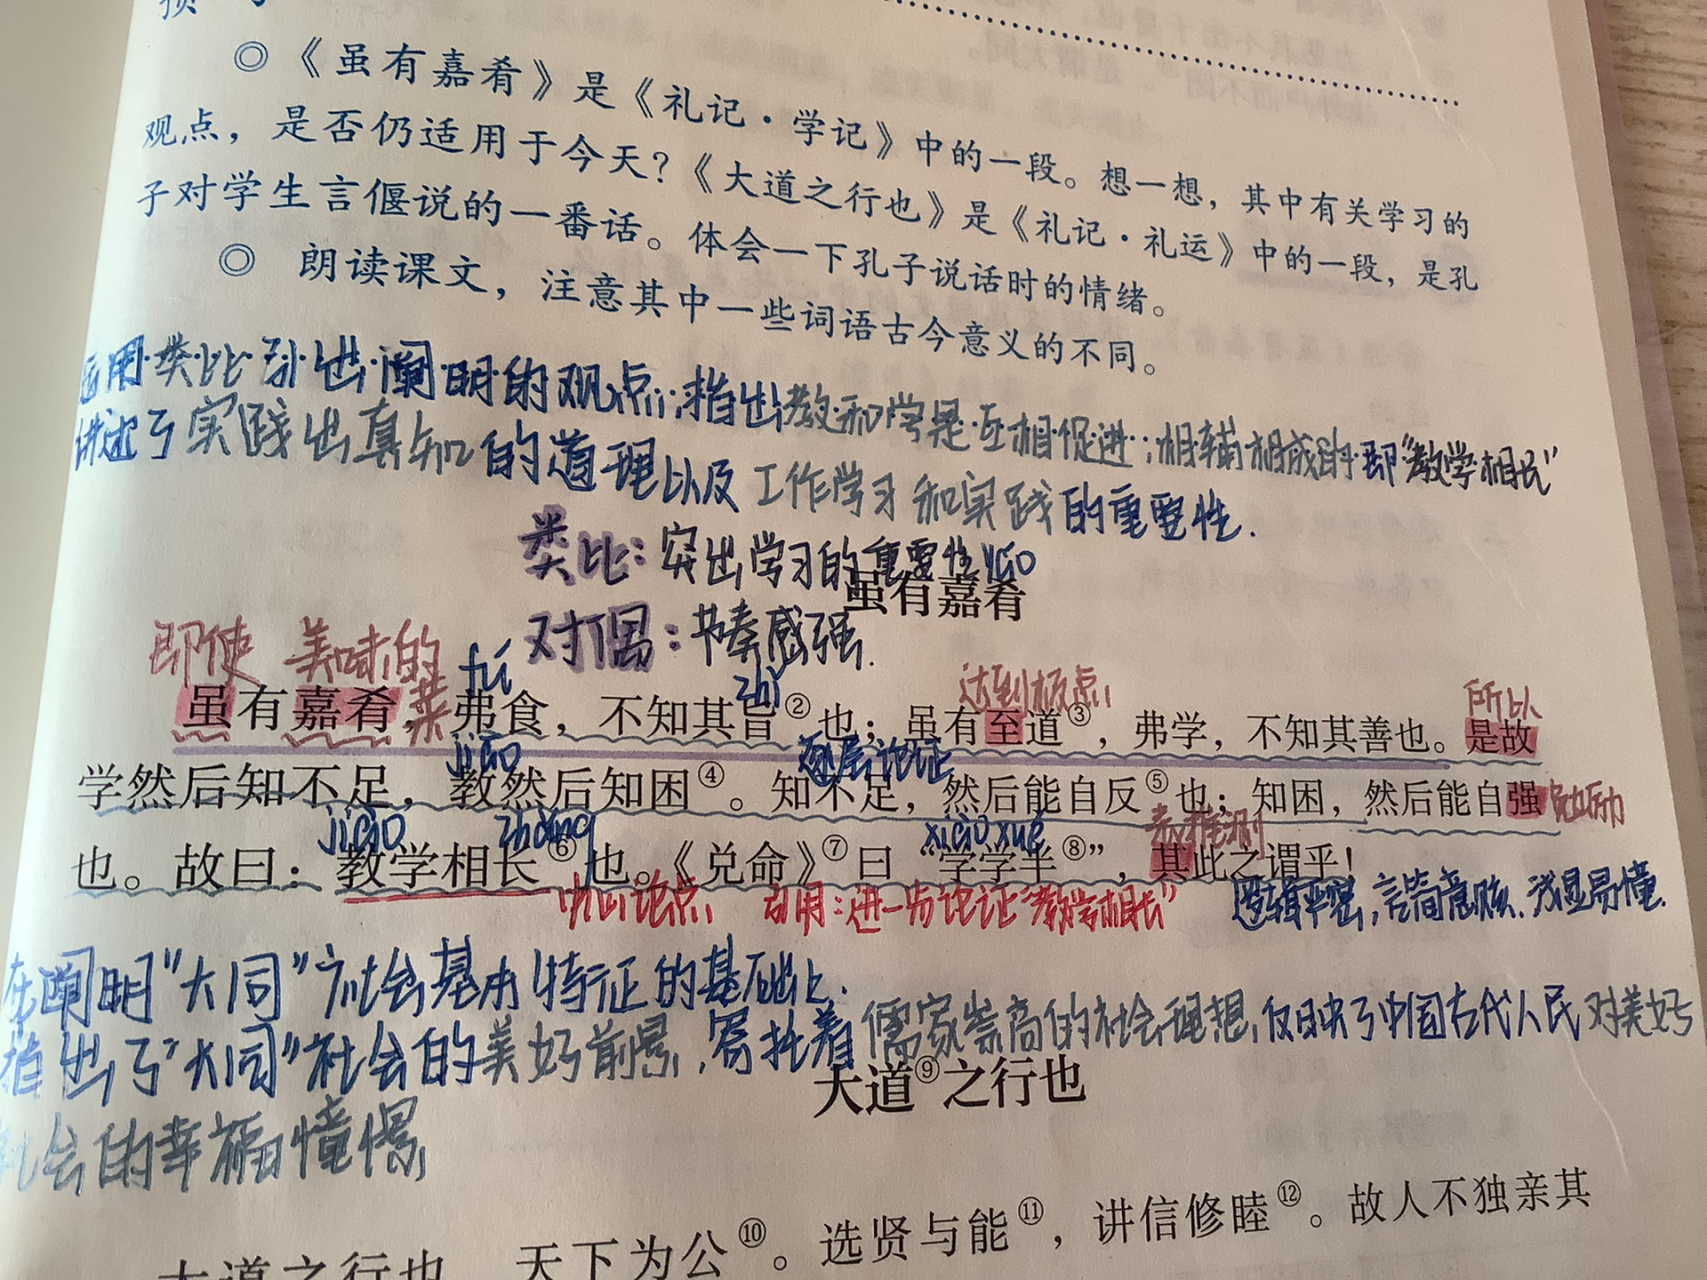 预 习
◎ 《虽有嘉肴》是《礼记·学记》中的一段。想一想，其中有关学习的
观点，是否仍适用于今天？《大道之行也》是《礼记·礼运》中的一段，是孔
子对学生言偃说的一番话。体会一下孔子说话时的情绪。
◎ 朗读课文，注意其中一些词语古今意义的不同。
运用类比引出阐明的观点，指出教和学是互相促进，相辅相成的即“教学相长”
讲述了实践出真知的道理以及工作学习和实践的重要性.
类比：突出学习的重要性 yáo
虽有嘉肴
对偶：节奏感强.
即使 美味的菜 fú zhǐ 达到极点 所以
虽有嘉肴，弗食，不知其旨②也；虽有至道③，弗学，不知其善也。是故
jiāo 逐层论证
学然后知不足，教然后知困④。知不足，然后能自反⑤也；知困，然后能自强 勉励
jiào zhǎng xiào xué 表推测
也。故曰：教学相长⑥也。《兑命》⑦曰“学学半⑧”，其此之谓乎！
中心论点 引用：进一步论证“教学相长” 逻辑严密，言简意赅，浅显易懂.
在阐明“大同”社会基本特征的基础上.
指出了“大同”社会的美好前景，寄托着儒家崇高的社会理想，反映了中国古代人民对美好
社会的幸福憧憬
大道⑨之行也
大道之行也，天下为公⑩。选贤与能⑪，讲信修睦⑫。故人不独亲其